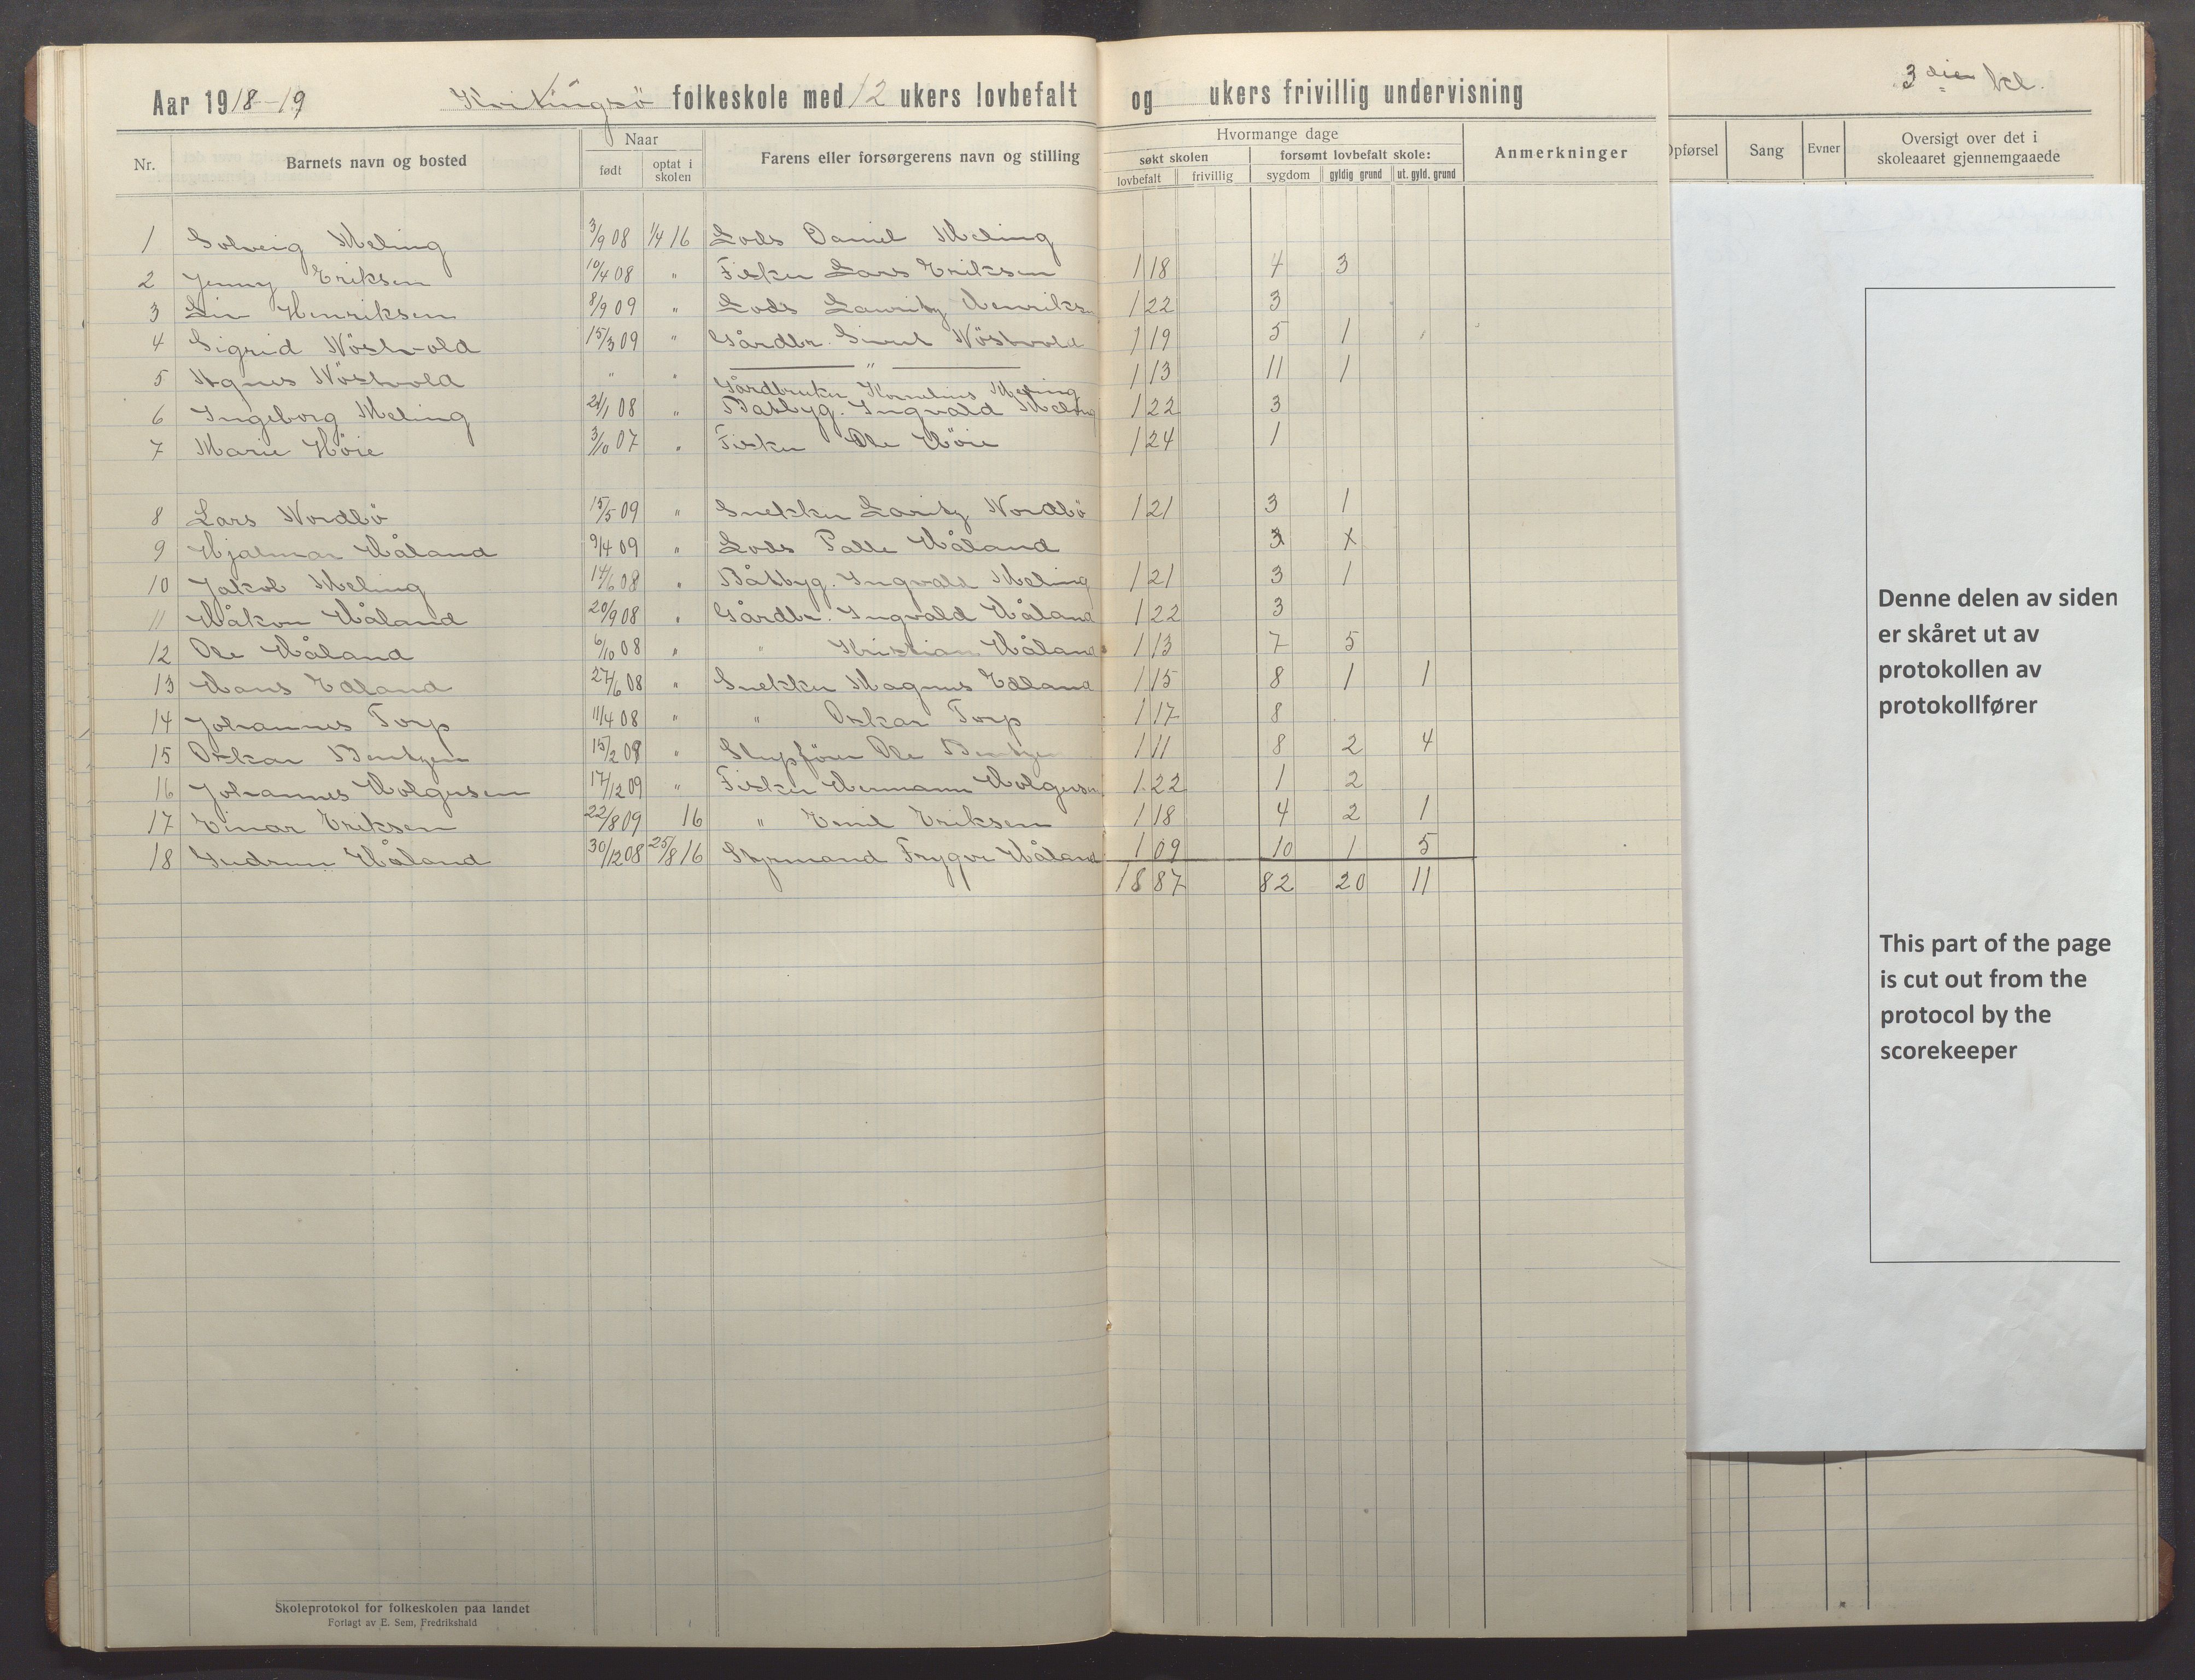 Aar 1918-19 Kvitingsö folkeskole med 12 ukers lovbefalt og ukers frivillig undervisning
3die kl.
Nr. Barnets navn og bosted Naar født optat i skolen Farens eller forsørgerens navn og stilling Hvormange dage søkt skolen lovbefalt frivillig forsømt lovbefalt skole: sygdom gyldig grund ut. gyld. grund Anmerkninger Opførsel Sang Evner Oversigt over det i skoleaaret gjennemgaaede
1 Solveig Meling 3/9 08 1/4 16 Lods Daniel Meling
2 Jenny Eriksen 10/4 08 " Fisker Lars Eriksen 118 4 3
3 Liv Henriksen 8/9 09 " Lods Lauritz Henriksen 122 3
4 Sigrid Nöstvold 15/3 09 " Gårdbr. Sivert Nöstvold 119 5 1
5 Agnes Nöstvold " " " 113 11 1
Gårdbruker Kornelius Meling
6 Ingeborg Meling 21/1 08 " Båtbyg. Ingvald Meling 122 3
7 Marie Höie 3/10 07 " Fisker Ole Höie 124 1
8 Lars Nordbö 15/5 09 " Snekker Laritz Nordbö 121 3 1
9 Hjalmar Håland 9/4 09 " Lods Palle Håland 3 x
10 Jakob Meling 14/6 08 " Båtbyg. Ingvald Meling 121 3 1
11 Håkon Håland 20/9 08 " Gårdbr. Ingvald Håland 122 3
12 Ole Håland 6/10 08 " " Kristian Håland 113 7 5
13 Hans Edland 27/6 08 " Snekker Magnus Edland 115 8 1 1
14 Johannes Torp 11/4 08 " " Oskar Torp 117 8
15 Oskar Bentzen 15/2 08 " Skipförer Ole Bentzen 111 8 2 4
16 Johannes Holgersen 17/12 09 " Fisker Hermann Holgersen 122 1 2
17 Einar Eriksen 22/8 09 16 " Emil Eriksen 118 4 2 1
18 Gudrun Håland 30/12 08 25/8 16 Styrmand Trygve Håland 109 10 1 5
1887 82 20 11
Denne delen av siden
er skåret ut av
protokollen av
protokollfører
This part of the page
is cut out from the
protocol by the
scorekeeper
Skoleprotokol for folkeskolen paa landet
Forlagt av E. Sem, Fredrikshald